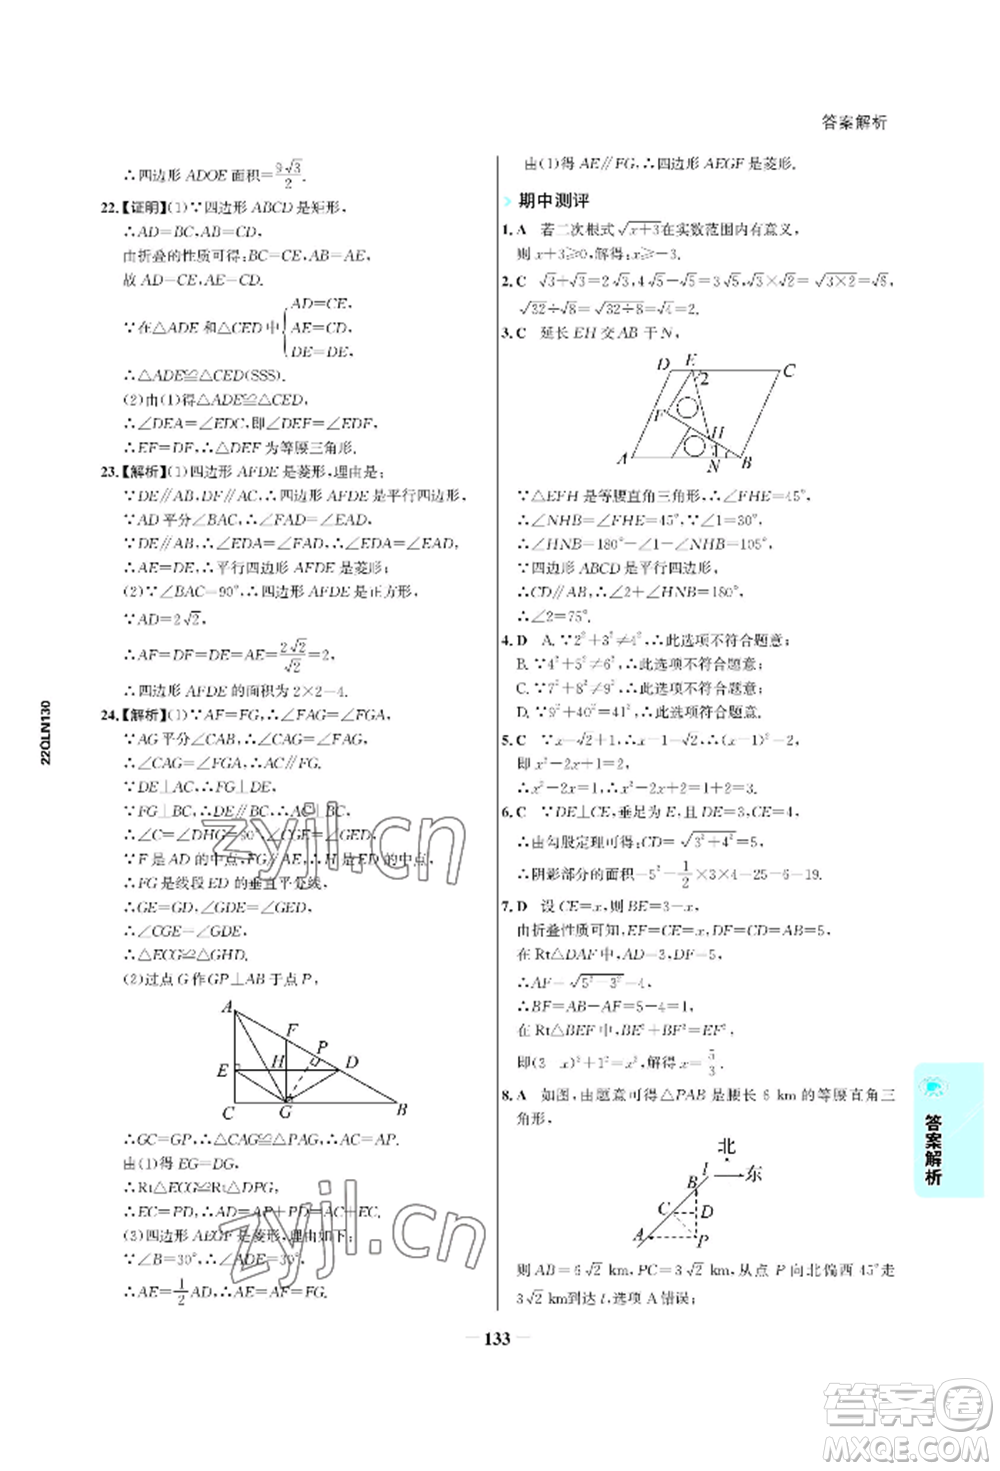 答案解析
∴四边形 ADOE 面积=9√3/2.
22.【证明】(1)∵四边形 ABCD 是矩形,
∴AD=BC,AB=CD,
由折叠的性质可得:BC=CE,AB=AE,
故 AD=CE,AE=CD.
AD=CE,
∵在△ADE 和△CED 中{AE=CD,
DE=DE,
∴△ADE≌△CED(SSS).
(2)由(1)得△ADE≌△CED,
∴∠DEA=∠EDC,即∠DEF=∠EDF,
∴EF=DF,∴△DEF 为等腰三角形.
23.【解析】(1)四边形 AFDE 是菱形,理由是:
∵DE∥AB,DF∥AC,∴四边形 AFDE 是平行四边形,
∵AD 平分∠BAC,∴∠FAD=∠EAD,
∵DE∥AB,∴∠EDA=∠FAD,∴∠EDA=∠EAD,
∴AE=DE,∴平行四边形 AFDE 是菱形;
(2)∵∠BAC=90°,∴四边形 AFDE 是正方形,
∵AD=2√2,
∴AF=DF=DE=AE=2√2/√2=2,
∴四边形 AFDE 的面积为 2×2=4.
24.【解析】(1)∵AF=FG,∴∠FAG=∠FGA,
∵AG 平分∠CAB,∴∠CAG=∠FAG,
∴∠CAG=∠FGA,∴AC∥FG.
∵DE⊥AC,∴FG⊥DE,
∵FG⊥BC,∴DE∥BC,∴AC⊥BC,
∴∠C=∠DHG=90°,∠CGE=∠GED,
∵F 是 AD 的中点,FG∥AE,∴H 是 ED 的中点,
∴FG 是线段 ED 的垂直平分线,
∴GE=GD,∠GDE=∠GED,
∴∠CGE=∠GDE,
∴△ECG≌△GHD.
(2)过点 G 作 GP⊥AB 于点 P,
A
F
P
E
H
D
C
G
B
∴GC=GP,∴△CAG≌△PAG,∴AC=AP.
由(1)得 EG=DG,
∴Rt△ECG≌Rt△DPG,
∴EC=PD,∴AD=AP+PD=AC+EC.
(3)四边形 AEGF 是菱形,理由如下:
∵∠B=30°,∴∠ADE=30°,
∴AE=1/2AD,∴AE=AF=FG.
由(1)得 AE∥FG,∴四边形 AEGF 是菱形.
期中测评
1.A 若二次根式√x+3在实数范围内有意义,
则 x+3≥0,解得:x≥-3.
2.C √3+√3=2√3,4√5-√5=3√5,√3×√2=√3×2=√6,
√32÷√8=√32÷8=√4=2.
3.C 延长 EH 交 AB 于 N,
D
E
C
2
F
H
1
A
N
B
∵△EFH 是等腰直角三角形,∴∠FHE=45°,
∴∠NHB=∠FHE=45°,∵∠1=30°,
∴∠HNB=180°-∠1-∠NHB=105°,
∵四边形 ABCD 是平行四边形,
∴CD∥AB,∴∠2+∠HNB=180°,
∴∠2=75°.
4.D A.∵2²+3²≠4²,∴此选项不符合题意;
B.∵4²+5²≠6²,∴此选项不符合题意;
C.∵7²+8²≠9²,∴此选项不符合题意;
D.∵9²+12²=15²,∴此选项符合题意.
5.C ∵x=√2+1,∴x-1=√2,∴(x-1)²=2,
即 x²-2x+1=2,
∴x²-2x=1,∴x²-2x+2=1+2=3.
6.C ∵DE⊥CE,垂足为 E,且 DE=3,CE=4,
∴由勾股定理可得 CD=√3²+4²=5,
∴阴影部分的面积=5²-1/2×3×4=25-6=19.
7.D 设 CE=x,则 BE=3-x,
由折叠性质可知,EF=CE=x,DF=CD=AB=5,
在 Rt△DAF 中,AD=3,DF=5,
∴AF=√5²-3²=4,
∴BF=AB-AF=5-4=1,
在 Rt△BEF 中,BE²+BF²=EF²,
即(3-x)²+1²=x²,解得 x=5/3.
8.A 如图,由题意可得△PAB 是腰长 6 km 的等腰直角三
角形,
北
东
l
B
C
D
A
P
则 AB=6√2 km,PC=3√2 km,从点 P 向北偏西 45°走
3√2 km到达 l,选项 A 错误;
133
22QLN130
答案解析
zyjl.cn
zyjl.cn
答案圈
MXQE.COM